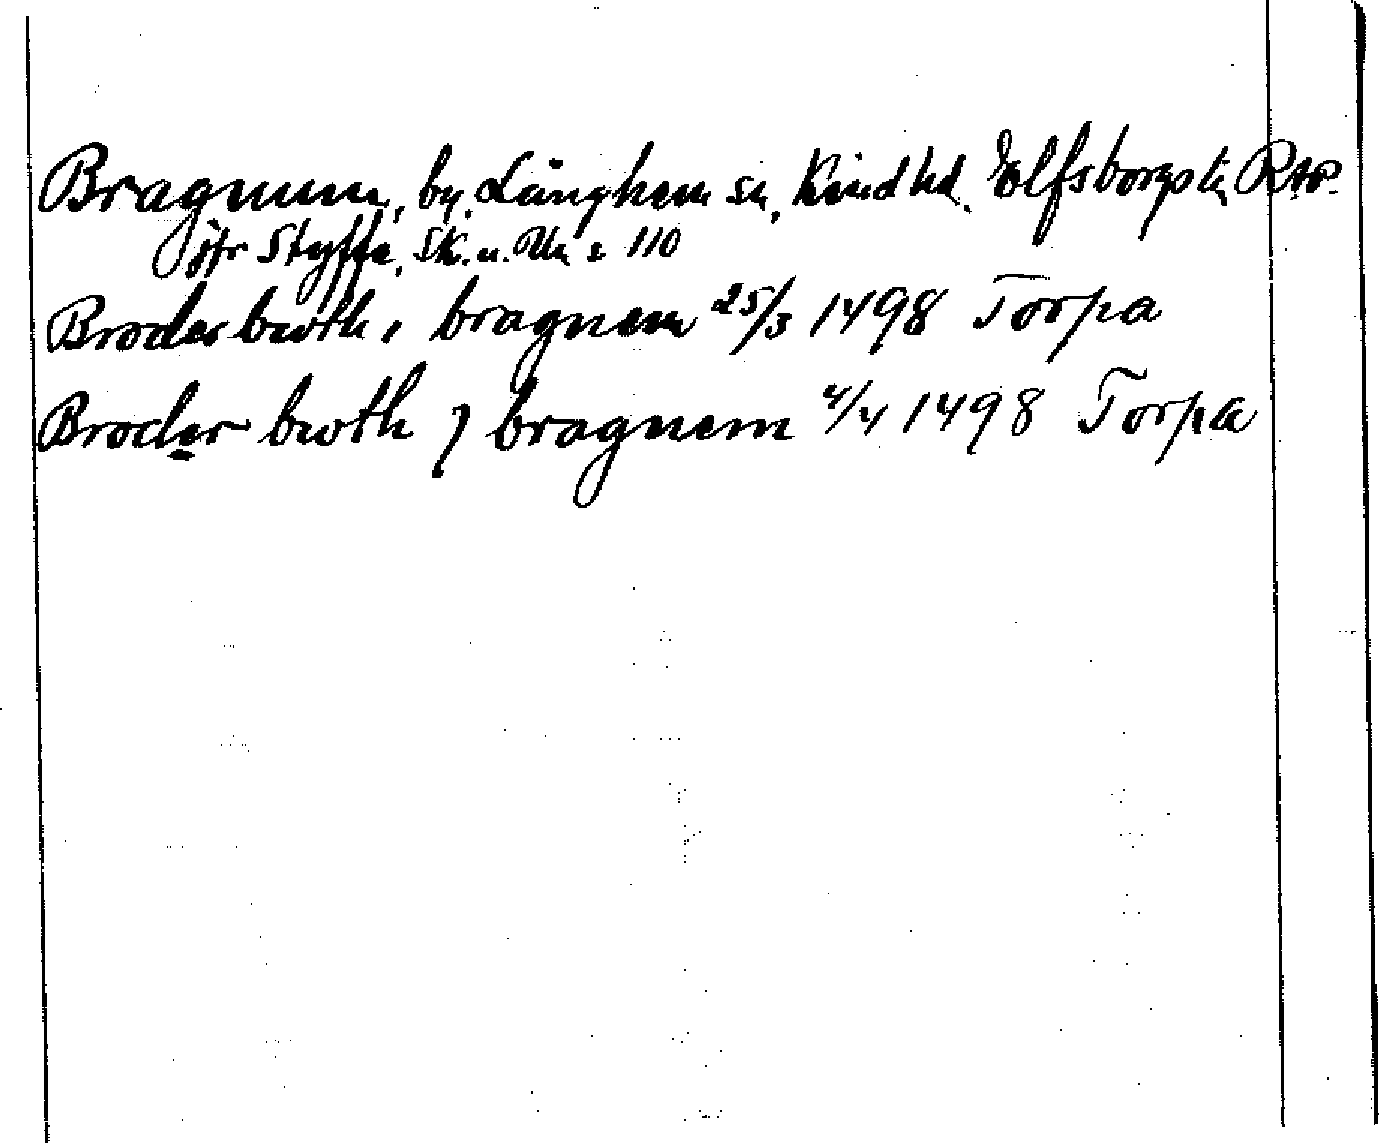 Bragnum, by, Länghem sn, Kind hd. Elfsborgs l:n RAP.
jfr Styffe, Sk. u. Un s 110
Broder bwth i bragnem 25/3 1498 Torpa
Broder bwth j bragnem 4/4 1498 Torpa